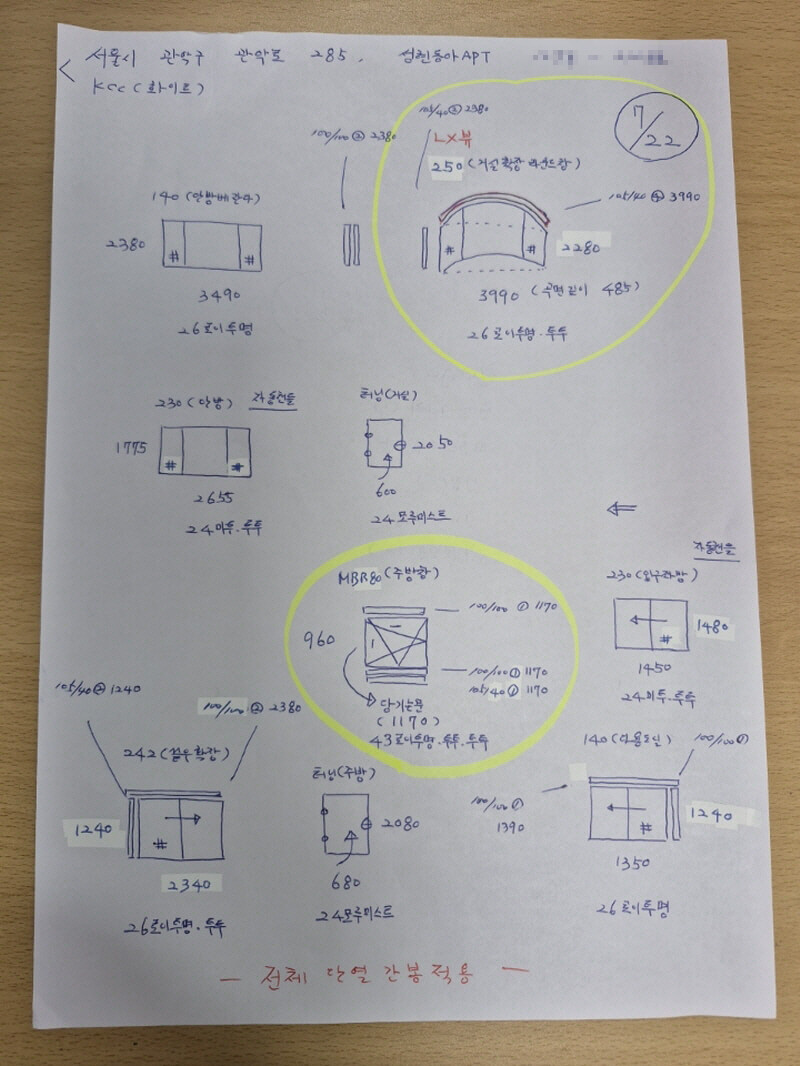 서울시 관악구 관악로 285, 성현동아APT
KCC (화이트)
7/22
105/40 ② 2380
100/100 ② 2380
LX뷰
250 (거실확장 라운드창)
105/40 ④ 3990
140 (안방베란다)
2380
#
#
3490
26로이투명
#
#
2280
3990 (곡면길이 485)
26로이투명·투투
230 (안방) 자동핸들
1775
#
#
2655
24미투·투투
터닝(거실)
2050
600
24모루미스트
자동핸들
230 (입구좌방)
#
1480
1450
24미투·투투
MBR80 (주방창)
100/100 ① 1170
960
100/100 ① 1170
105/40 ① 1170
당기는문
(1170)
43로이투명·투투·투투
105/40 ② 1240
100/100 ② 2380
242 (침우확장)
1240
#
2340
26로이투명·투투
터닝(주방)
2080
680
24모루미스트
100/100 ①
1390
100/100 ①
#
1240
1350
26로이투명
— 전체 단열 간봉적용 —